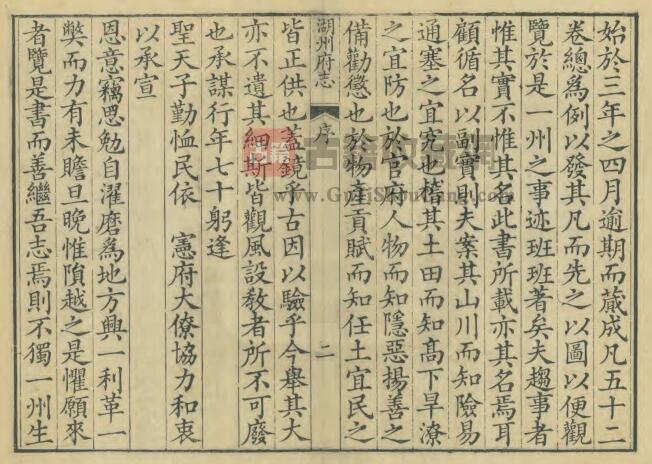 始於三年之四月逾期而蕆成凡五十二
卷總為例以發其凡而先之以圖以便觀
覽於是一州之事迹班班著矣夫趨事者
惟其實不惟其名此書所載亦其名焉耳
顧循名以副實則夫案其山川而知險易
通塞之宜究也稽其土田而知高下旱潦
之宜防也於官府人物而知隱惡揚善之
備勸懲也於物產貢賦而知任土宜民之
湖州府志
序
二
皆正供也蓋鏡乎古因以驗乎今舉其大
亦不遺其細斯皆觀風設教者所不可廢
也承謀行年七十躬逢
聖天子勤恤民依 憲府大僚協力和衷
以承宣
恩意竊思勉自濯磨為地方興一利革一
弊而力有未贍旦晚惟隕越之是懼願來
者覽是書而善繼吾志焉則不獨一州生
古籍
www.GujiShuFang.com